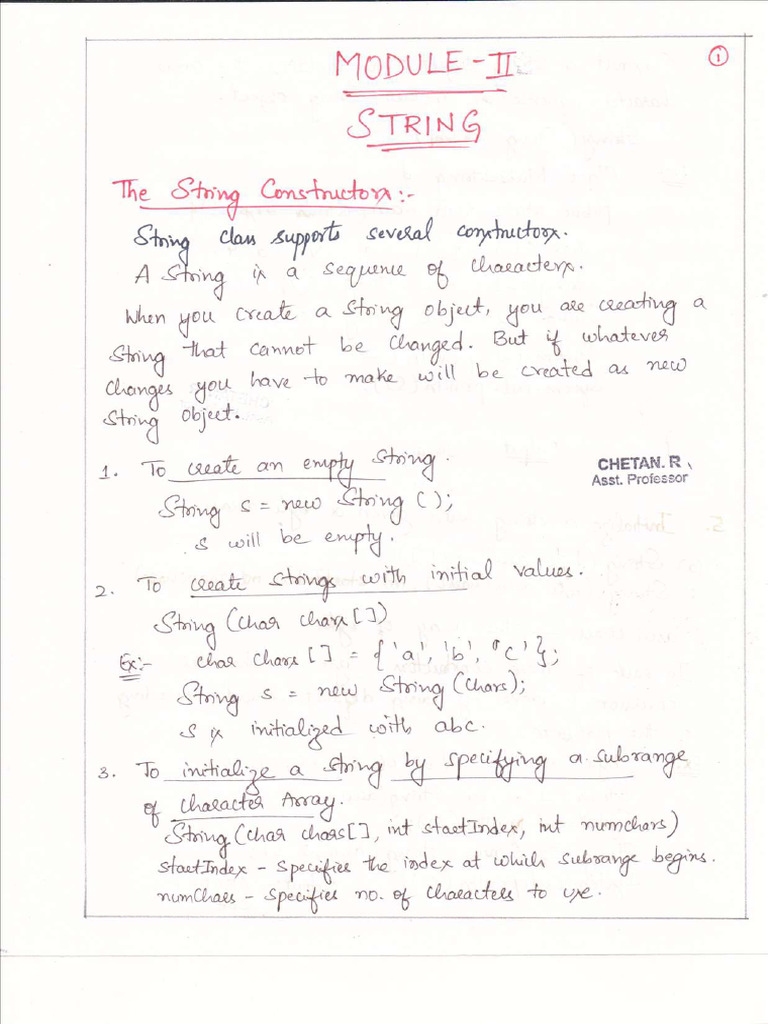 1
MODULE-II
STRING
The String Constructors:-
String class supports several constructors.
A String is a sequence of characters.
When you create a String object, you are creating a
String that cannot be changed. But if whatever
changes you have to make will be created as new
String object.
1. To create an empty String.
CHETAN. R
Asst. Professor
String s = new String ();
s will be empty.
2. To create strings with initial values.
String (char chars [])
Ex:- char chars [] = {'a', 'b', 'c'};
String s = new String (chars);
s is initialized with abc.
3. To initialize a string by specifying a subrange
of character Array.
String (char chars[], int startIndex, int numchars)
startIndex - specifies the index at which subrange begins.
numChars - specifies no. of characters to use.